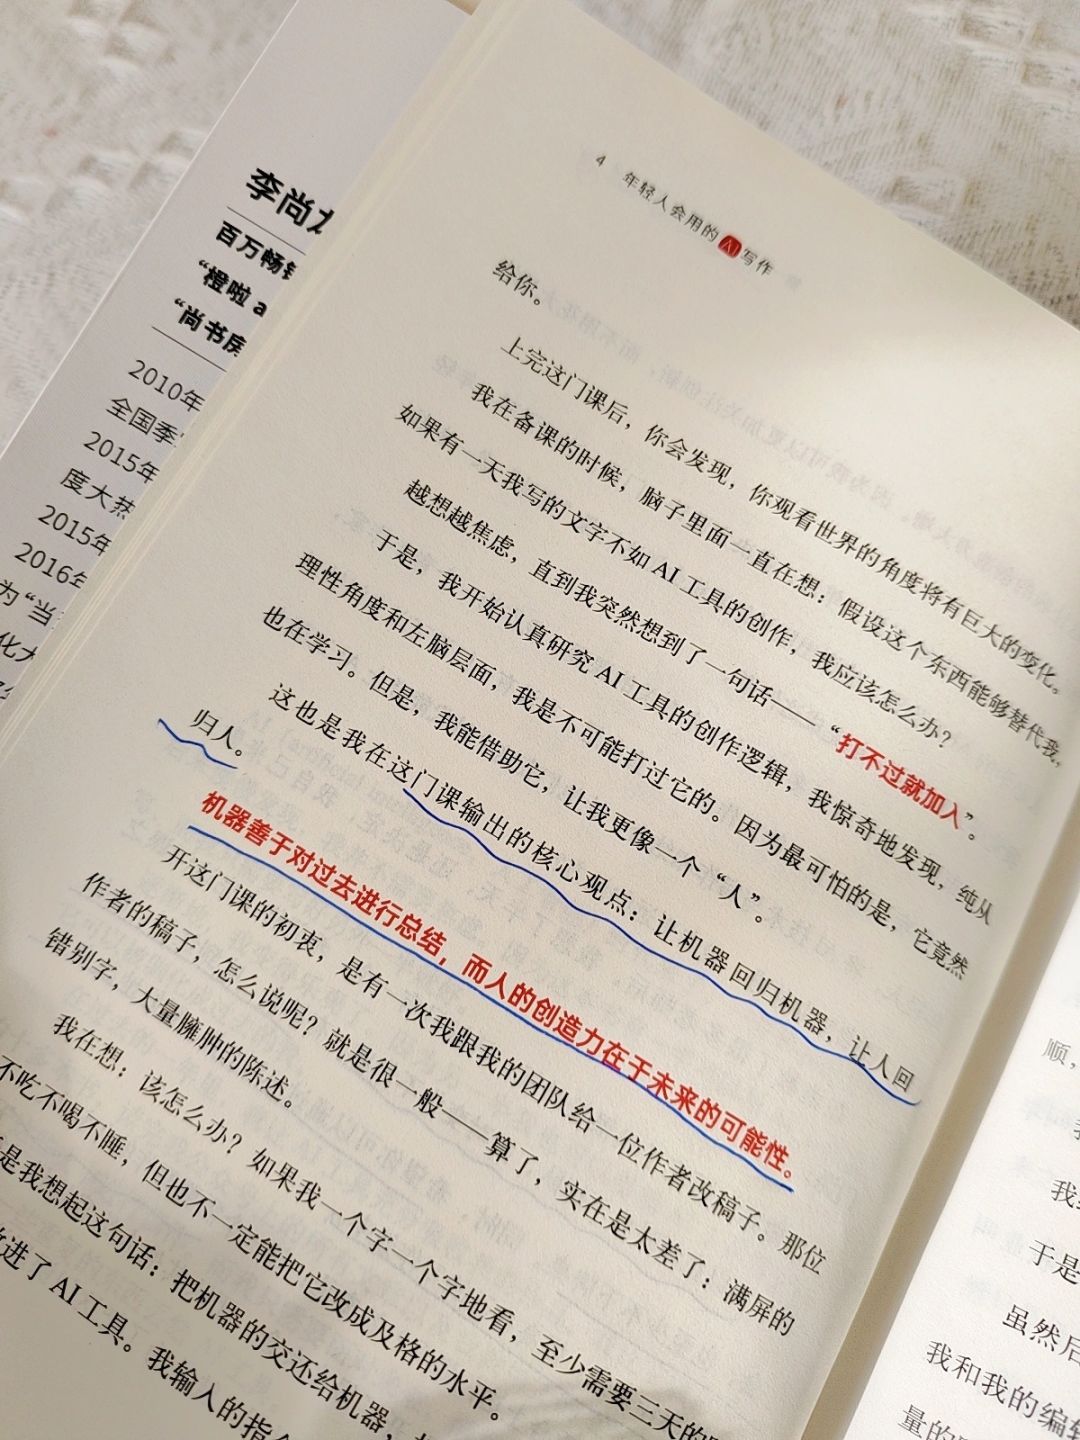 李尚
百万畅
“橙啦 a
“尚书房
2010年
全国季
2015年
度大热
2015年
2016年
为“当
化大
4 年轻人会用的AI写作
给你。
上完这门课后，你会发现，你观看世界的角度将有巨大的变化。
我在备课的时候，脑子里面一直在想：假设这个东西能够替代我，
如果有一天我写的文字不如 AI 工具的创作，我应该怎么办？
越想越焦虑，直到我突然想到了一句话——“打不过就加入”。
于是，我开始认真研究 AI 工具的创作逻辑，我惊奇地发现，纯从
理性角度和左脑层面，我是不可能打过它的。因为最可怕的是，它竟然
也在学习。但是，我能借助它，让我更像一个“人”。
这也是我在这门课输出的核心观点：让机器回归机器，让人回
归人。
机器善于对过去进行总结，而人的创造力在于未来的可能性。
开这门课的初衷，是有一次我跟我的团队给一位作者改稿子。那位
作者的稿子，怎么说呢？就是很一般——算了，实在是太差了：满屏的
错别字，大量臃肿的陈述。
我在想：该怎么办？如果我一个字一个字地看，至少需要三天的
不吃不喝不睡，但也不一定能把它改成及格的水平。
是我想起这句话：把机器的交还给机器，
进了 AI 工具。我输入的指
顺，
我
于是
虽然后
我和我的编
量的